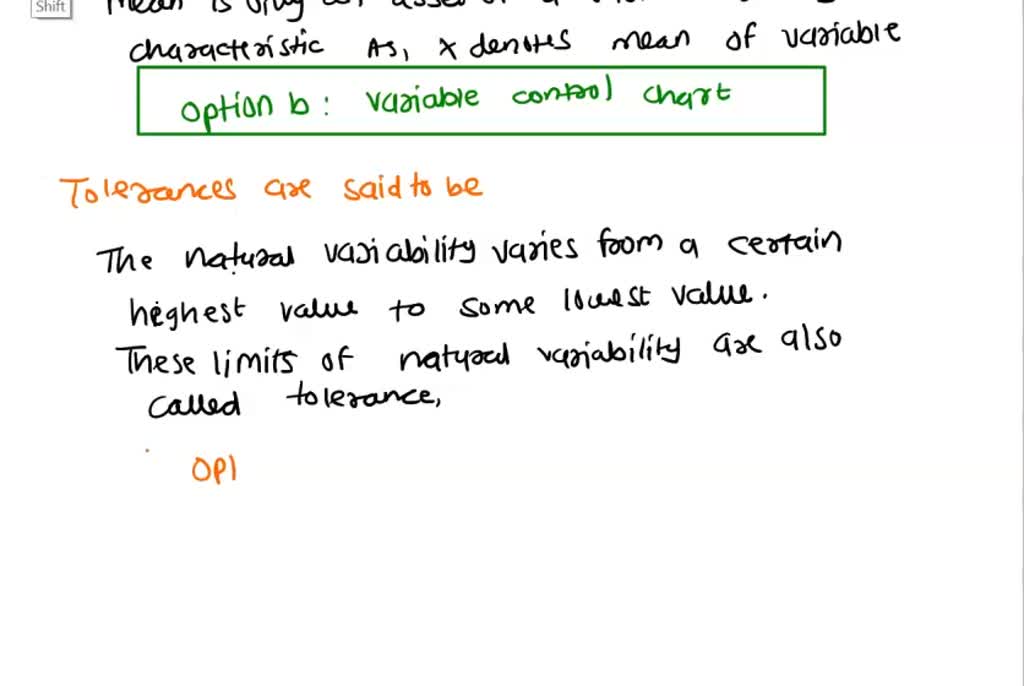 Shift
mean is only
characteristic As, x denotes mean of variable
option b: variable control chart
Tolerances are said to be
The natural variability varies from a certain
highest value to some lowest value.
These limits of natural variability are also
called tolerance,
OPI